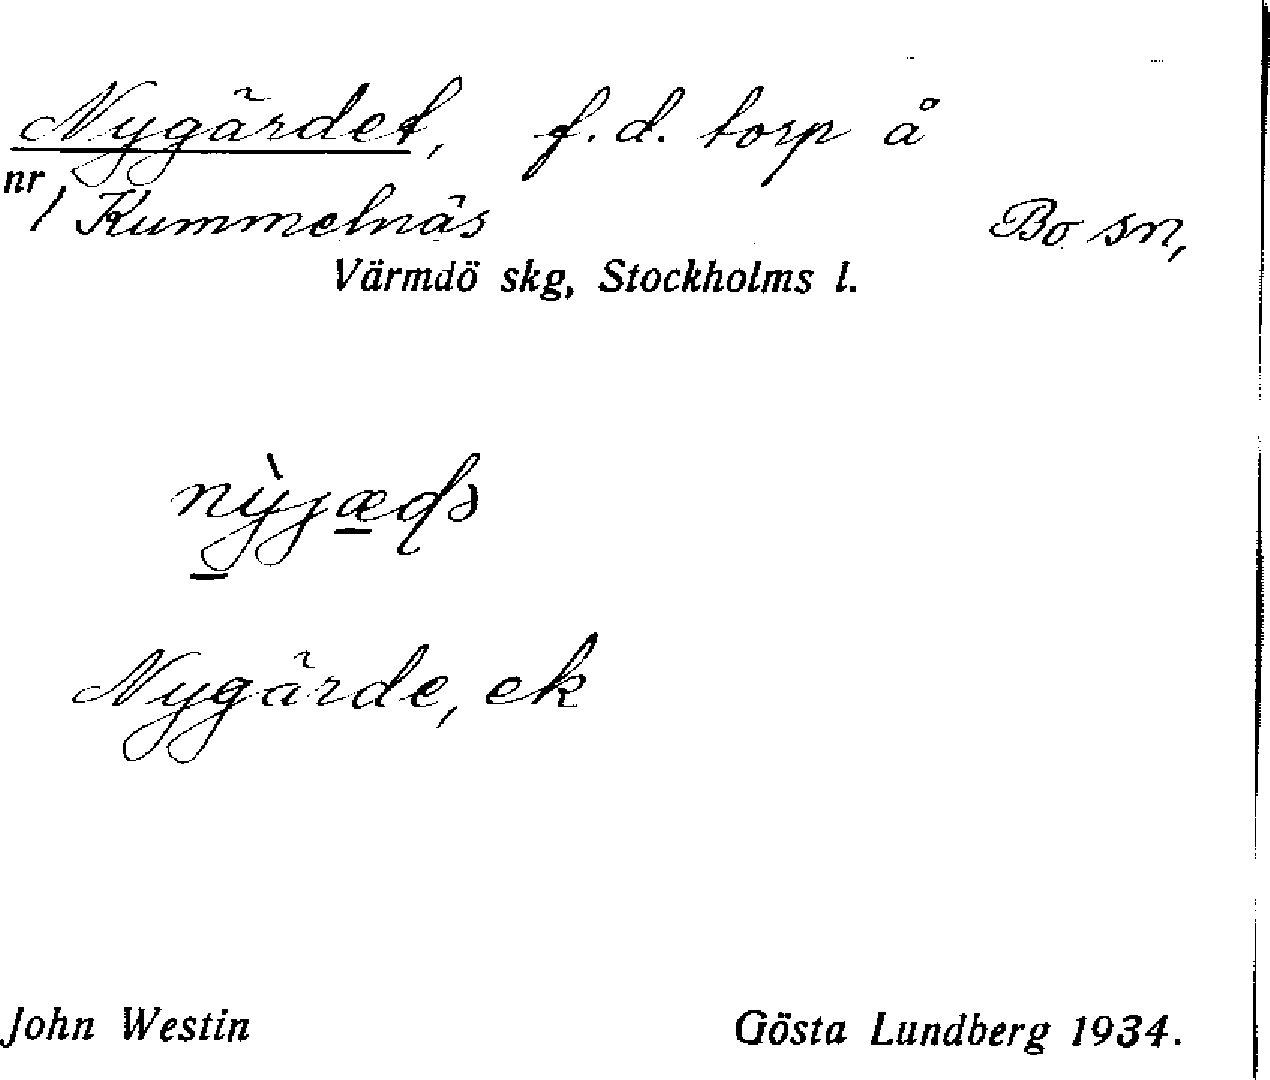 Nygärdet, f.d. torp å
nr 1 Kummelnäs Bo sn,
Värmdö skg, Stockholms l.
Nygärde, ek
John Westin Gösta Lundberg 1934.